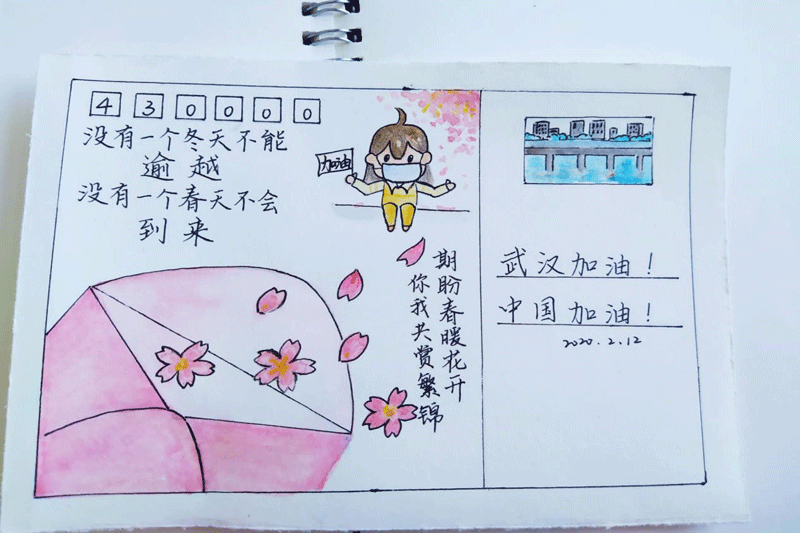 430000
没有一个冬天不能
逾越
没有一个春天不会
到来
加油
期盼春暖花开
你我共赏繁锦
武汉加油！
中国加油！
2020.2.12